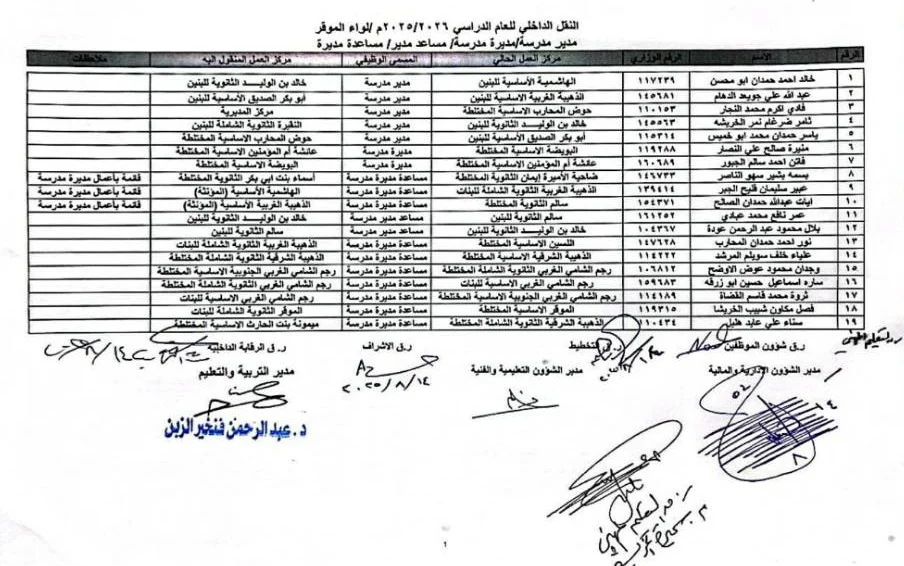 النقل الداخلي للعام الدراسي ٢٠٢٥/٢٠٢٦م /لواء الموقر
مدير مدرسة/مديرة مدرسة/ مساعد مدير/ مساعدة مديرة
الرقم الاسم الرقم الوزاري مركز العمل الحالي المسمى الوظيفي مركز العمل المنقول اليه ملاحظات
١ خالد احمد حمدان ابو محسن ١١٧٢٣٩ الهاشمية الأساسية للبنين مدير مدرسة خالد بن الوليد الثانوية للبنين
٢ عبد الله علي جويعد الدهام ١٤٥٦٨١ الذهيبة الغربية الاساسية للبنين مدير مدرسة أبو بكر الصديق الأساسية للبنين
٣ فادي اكرم محمد النجار ١١٠١٥٣ حوض المحارب الاساسية المختلطة مدير مدرسة مركز المديرية
٤ ثامر ضرغام نمر الخريشه ١٤٥٥٦٣ خالد بن الوليد الثانوية للبنين مدير مدرسة النقيرة الثانوية الشاملة للبنين
٥ ياسر حمدان محمد ابو خميس ١١٥٣١٤ أبو بكر الصديق الأساسية للبنين مدير مدرسة حوض المحارب الاساسية المختلطة
٦ منيرة صالح علي النصار ١١٩٢٨٨ البويضة الاساسية المختلطة مديرة مدرسة عائشة أم المؤمنين الاساسية المختلطة
٧ فاتن احمد سالم الجبور ١٦٠٦٨٩ عائشة أم المؤمنين الاساسية المختلطة مديرة مدرسة البويضة الاساسية المختلطة
٨ بسمه بشير سهو الناصر ١٤٦٧٣٣ ضاحية الأميرة إيمان الثانوية المختلطة مساعدة مديرة مدرسة أسماء بنت ابي بكر الثانوية المختلطة قائمة بأعمال مديرة مدرسة
٩ عبير سليمان فليح الجبر ١٣٩٤١٤ الذهيبة الغربية الثانوية الشاملة للبنات مساعدة مديرة مدرسة الهاشمية الأساسية (المؤنثة) قائمة بأعمال مديرة مدرسة
١٠ ايات عبدالله حمدان الصالح ١٥٤٣٧١ سالم الثانوية المختلطة مساعدة مديرة مدرسة الذهيبة الغربية الأساسية (المؤنثة) قائمة بأعمال مديرة مدرسة
١١ عمر نافع محمد عبادي ١٦١٢٥٢ سالم الثانوية للبنين مساعد مدير مدرسة خالد بن الوليد الثانوية للبنين
١٢ بلال محمود عبد الرحمن عودة ١٠٤٣٦٧ خالد بن الوليد الثانوية للبنين مساعد مدير مدرسة سالم الثانوية للبنين
١٣ نور احمد حمدان المحارب ١٤٧٦٢٨ اللسين الاساسية المختلطة مساعدة مديرة مدرسة الذهيبة الغربية الثانوية الشاملة للبنات
١٤ علياء خلف سويلم المرشد ١١٤٢٢٢ الذهيبة الشرقية الاساسية المختلطة مساعدة مديرة مدرسة الذهيبة الشرقية الثانوية الشاملة المختلطة
١٥ وجدان محمود عوض الاوضح ١٠٦٨١٢ رجم الشامي الغربي الثانوية الشاملة المختلطة مساعدة مديرة مدرسة رجم الشامي الغربي الجنوبية الاساسية المختلطة
١٦ ساره اسماعيل حسين ابو زرقه ١٥٩٦٨٣ رجم الشامي الغربي الاساسية للبنات مساعدة مديرة مدرسة رجم الشامي الغربي الثانوية الشاملة المختلطة
١٧ ثروة محمد قاسم القضاة ١١٤١٨٩ رجم الشامي الغربي الجنوبية الاساسية المختلطة مساعدة مديرة مدرسة رجم الشامي الغربي الاساسية للبنات
١٨ فصل مكاون شبيب الخريشا ١١٩٣١٥ الموقر الاساسية المختلطة مساعدة مديرة مدرسة الموقر الثانوية الشاملة للبنات
١٩ سناء علي عايد هليل ١١٠٤٣٤ الذهيبة الشرقية الثانوية الشاملة المختلطة مساعدة مديرة مدرسة ميمونة بنت الحارث الاساسية المختلطة
ر.ق شؤون الموظفين ر.ق التخطيط ر.ق الاشراف ر.ق الرقابة الداخلية
٢٠٢٥/٨/١٤
مدير الشؤون الإدارية والمالية مدير الشؤون التعليمية والفنية مدير التربية والتعليم
د. عبد الرحمن فنخير الزبن
١